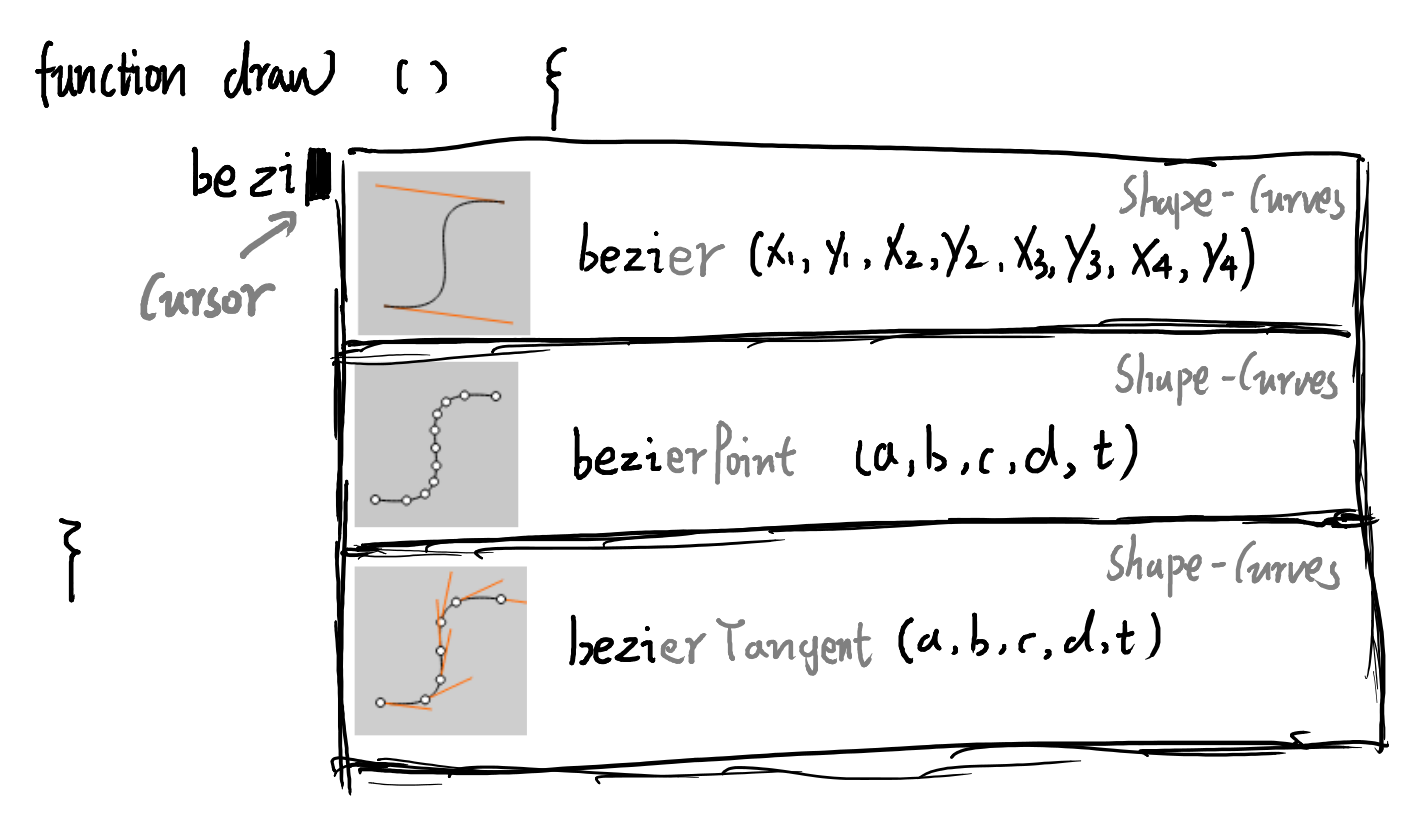 function draw () {
bezi
Cursor
Shape-Curves
bezier (x1, y1, x2, y2, x3, y3, x4, y4)
Shape-Curves
bezierPoint (a, b, c, d, t)
Shape-Curves
bezierTangent (a, b, c, d, t)
}